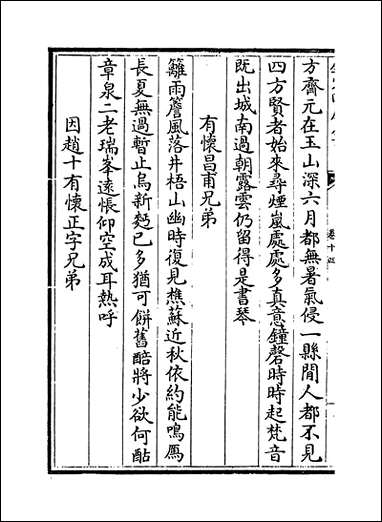 方齋元在玉山深六月都無暑氣侵一縣閒人都不見
四方賢者始來尋煙嵐處處多真意鐘磬時時起梵音
既出城南過朝露雲仍留得是書琴
有懷昌甫兄弟
籬雨簷風落井梧山幽時復見樵蘇近秋依約能鳴鴈
長夏無過暫止烏新麪已多猶可餅舊醅將少欲何酤
章泉二老瑞峯遠悵仰空成耳熱呼
因趙十有懷正字兄弟